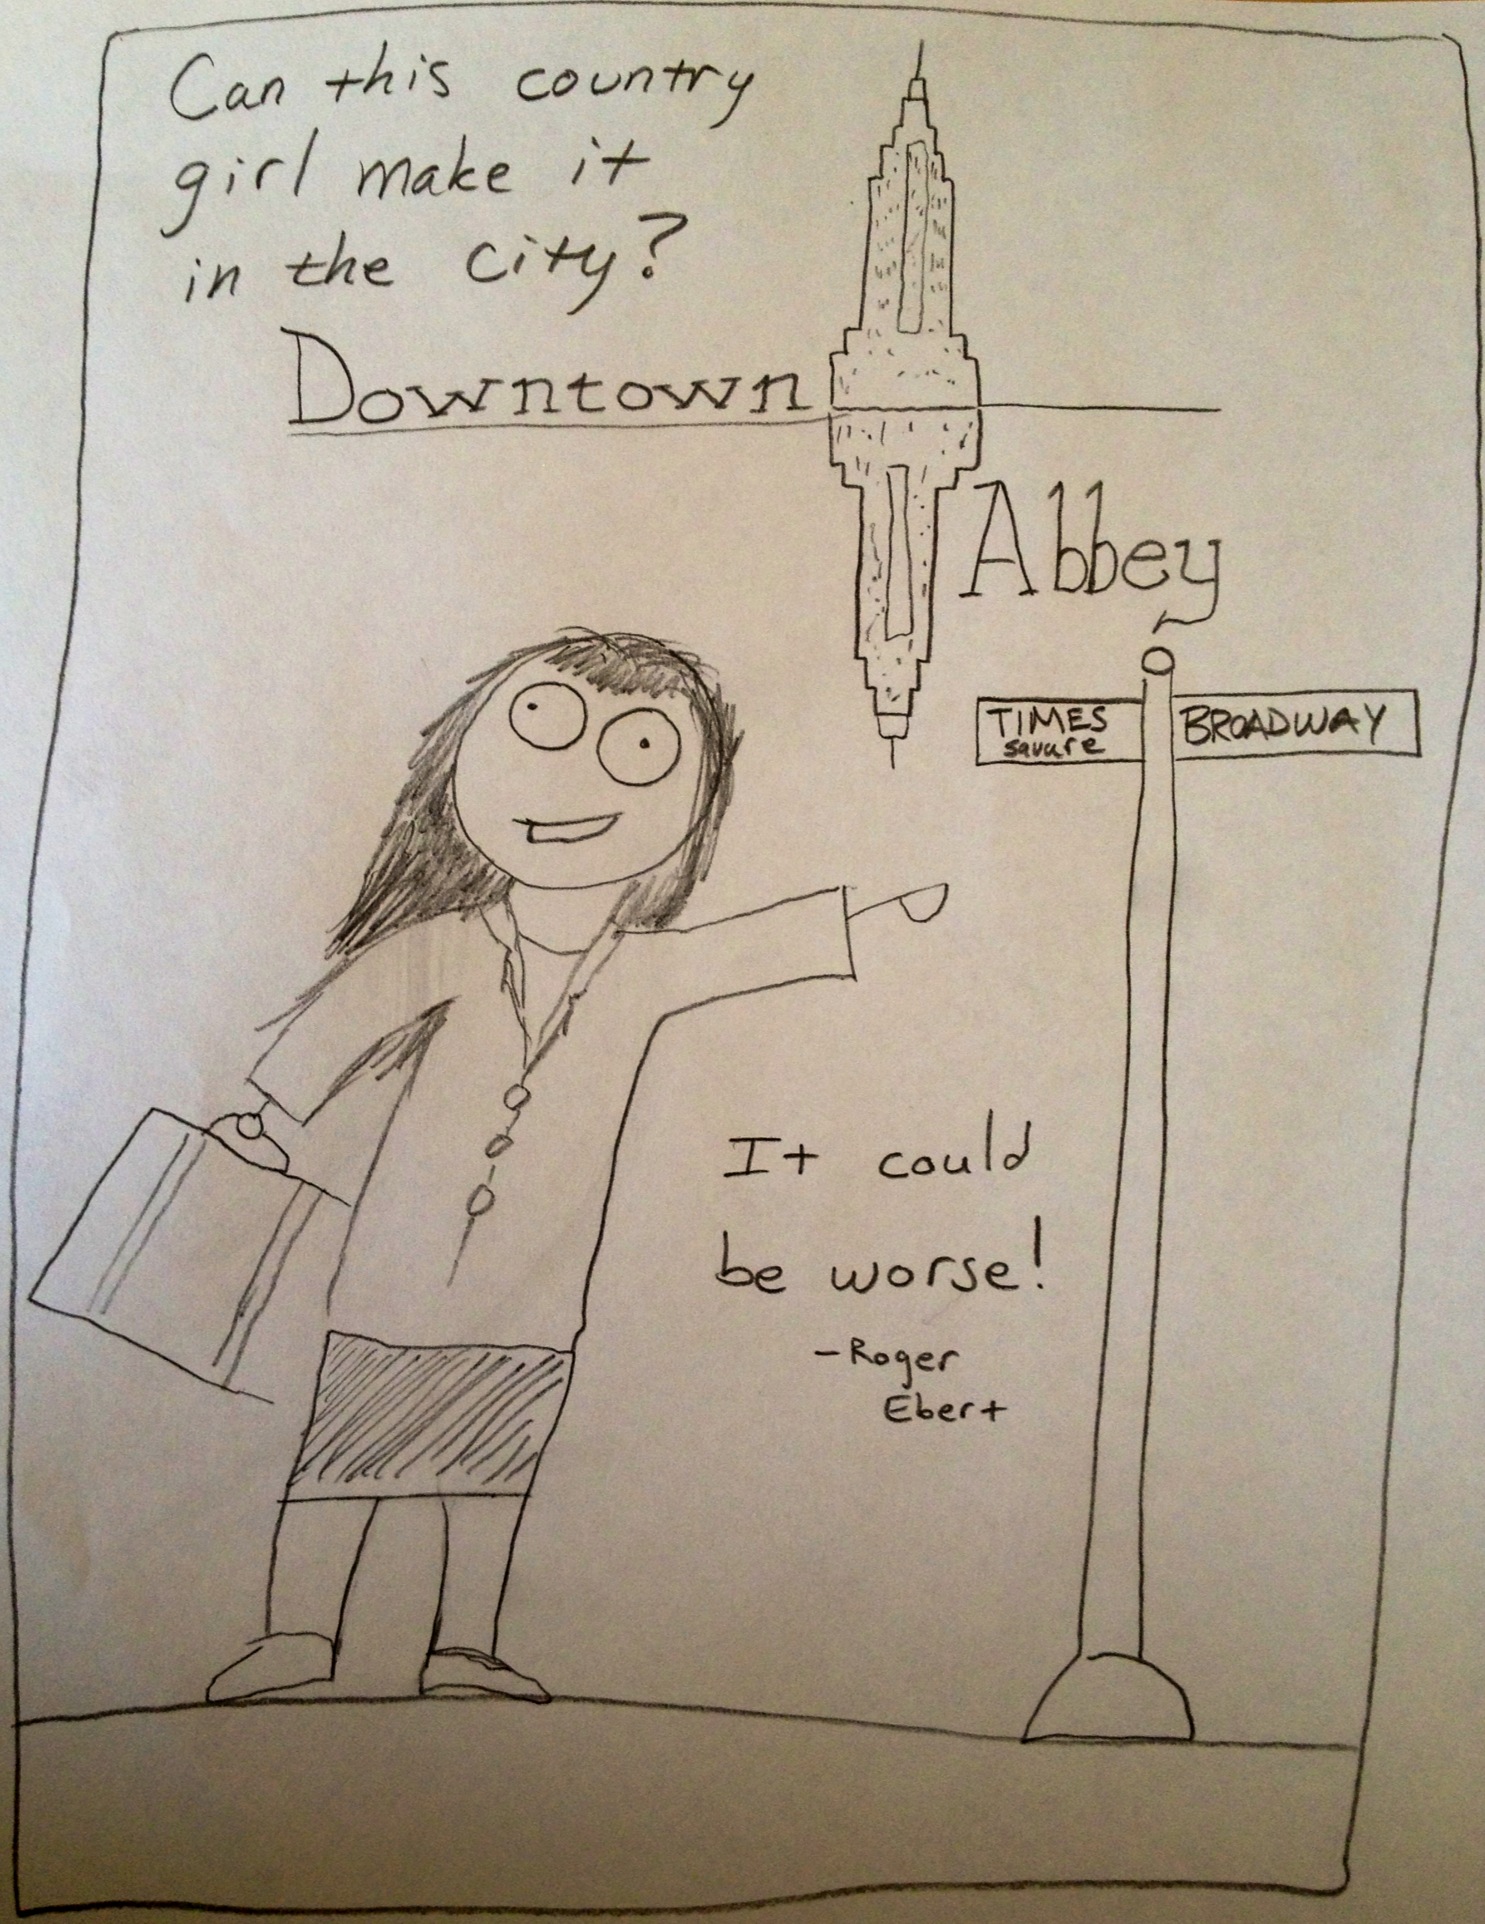 Can this country
girl make it
in the city?
Downtown
Abbey
TIMES
square
BROADWAY
It could
be worse!
-Roger
Ebert